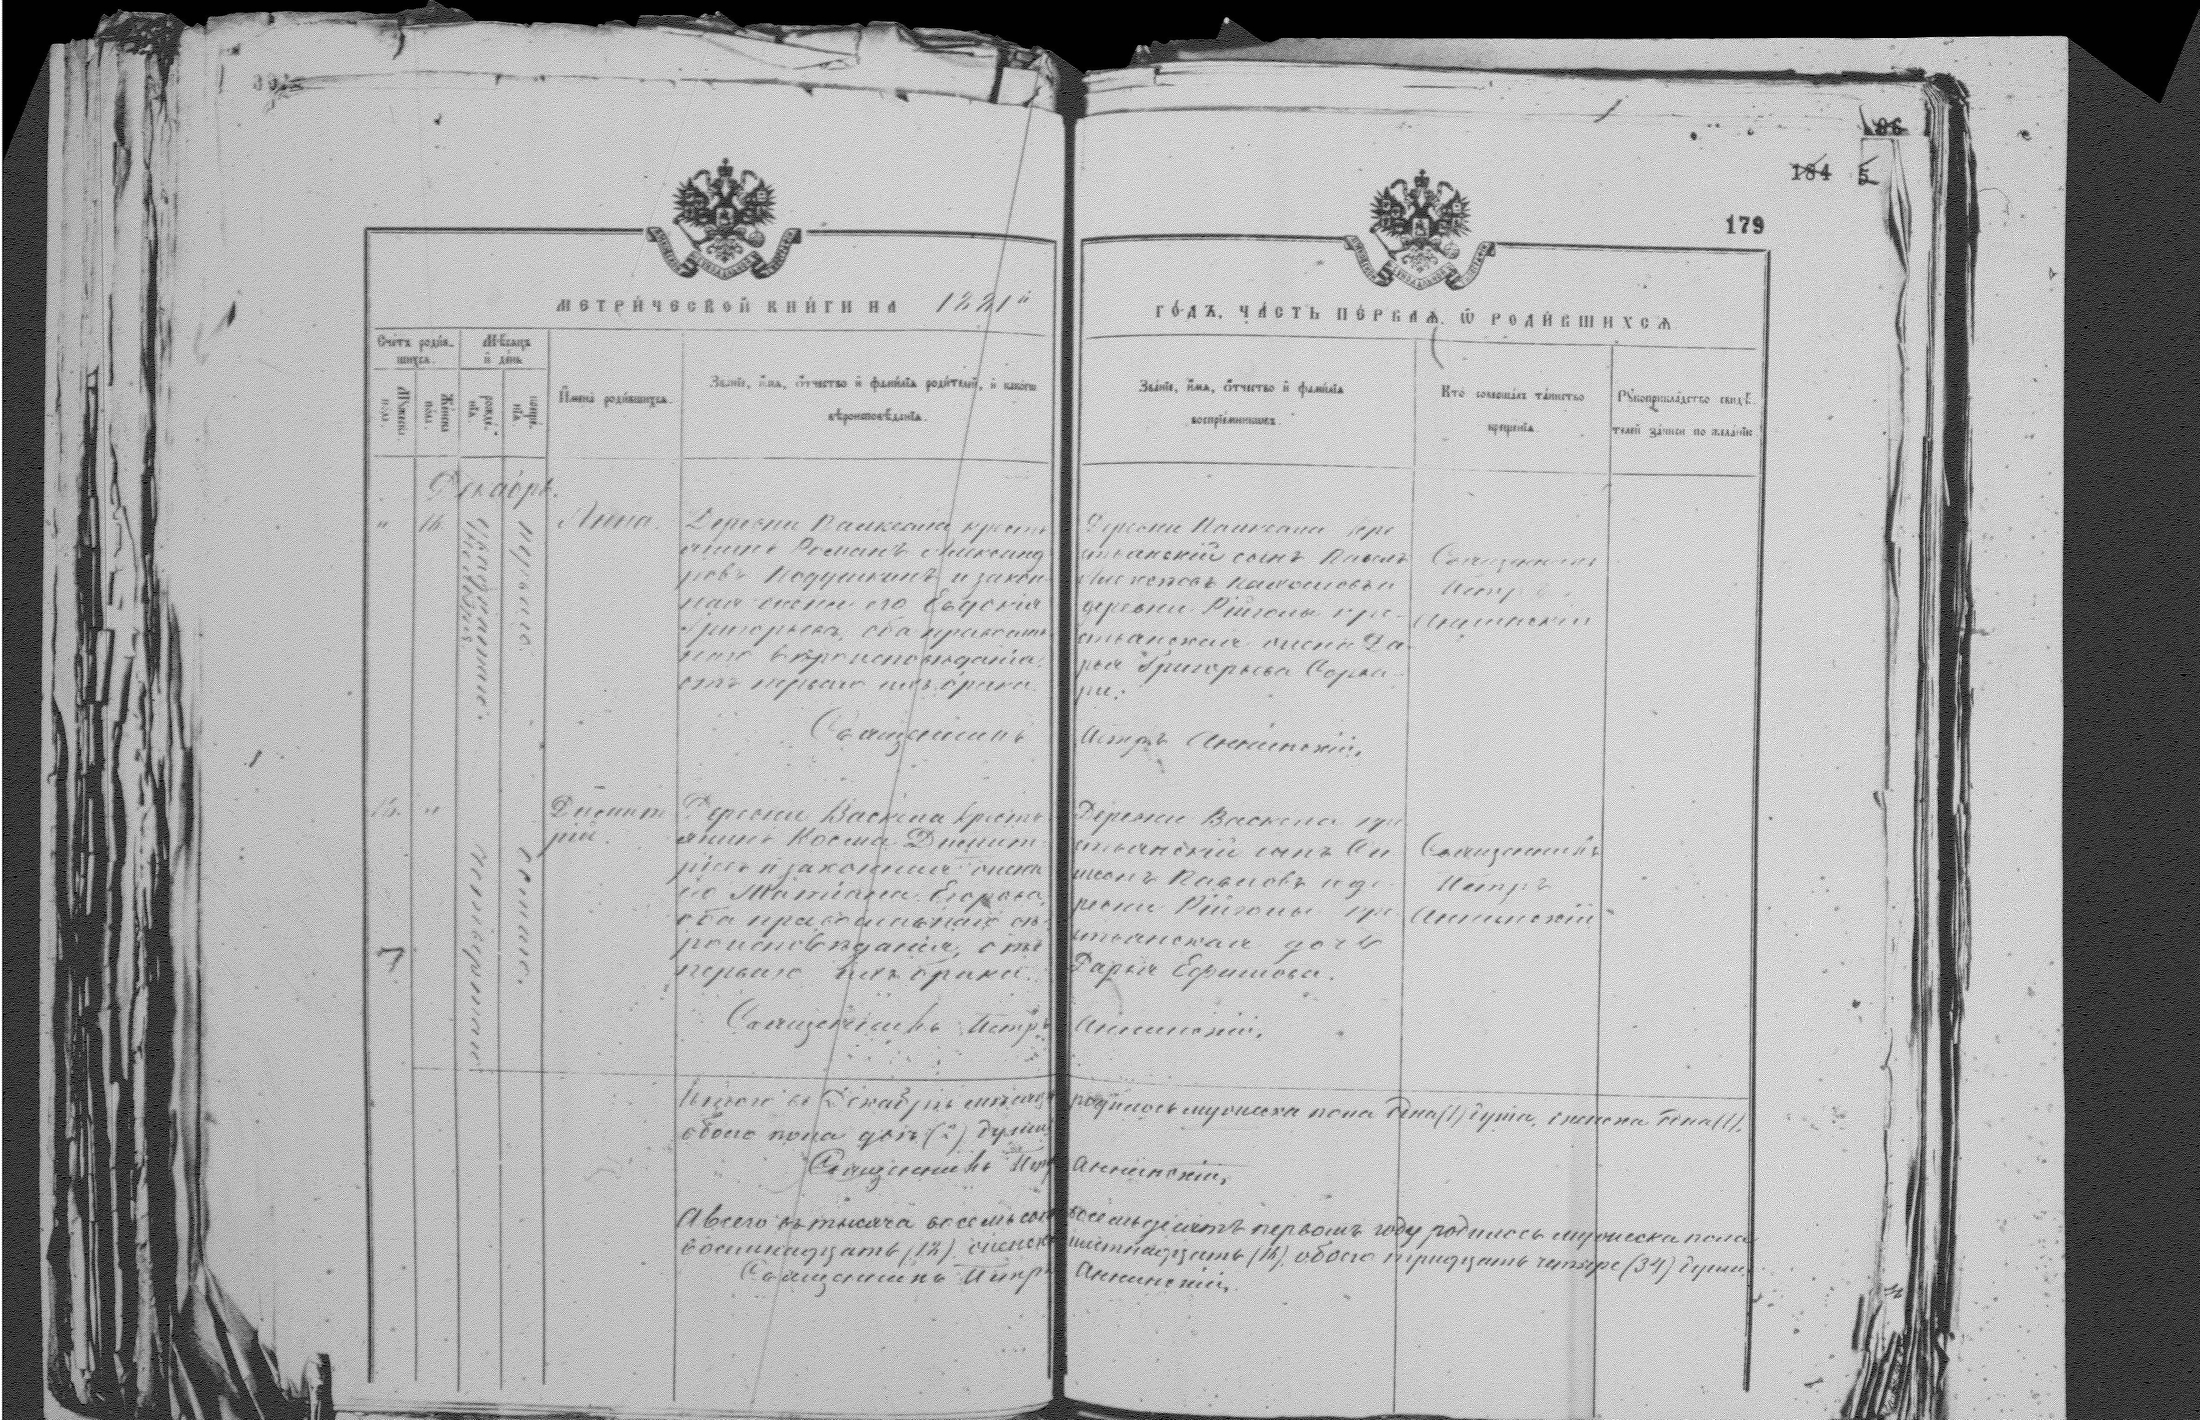 86
184 5
179
МЕТРИЧЕСКОЙ КНИГИ НА 1881й
ГОДЪ, ЧАСТЬ ПЕРВАЯ, Ѡ РОДИВШИХСЯ
Счетъ родив-
шихся.
Мѣсяцъ
и день
Мужеска
пола.
Женска
пола.
рожде-
нія.
креще-
нія.
Имена родившихся.
Званіе, имя, отчество и фамилія родителей, и какого
вѣроисповѣданія.
Званіе, имя, отчество и фамилія
воспріемниковъ.
Кто совершалъ таинство
крещенія
Рукоприкладство свидѣ-
телей записи по желанію
Декабрь.
" 16.
перваго.
Анна.
Деревни кресть-
янинъ Романъ Александ-
ровъ и закон-
ная жена его Евдокія
Григорьева, оба православ-
наго вѣроисповѣданія,
отъ перваго ихъ брака.
Деревни кре-
стьянскій сынъ
деревни Рійголы кре-
стьянская жена Да-
рья Григорьева
Священникъ
Петръ
Аннинскій
Священникъ Петръ Аннинскій.
"
Димит
рій.
четвертаго
Деревни Васкела кресть-
янинъ Косма Димит-
ріевъ и законная жена
его Егорова,
оба православнаго вѣ-
роисповѣданія, отъ
перваго ихъ брака.
Деревни Васкела кре-
стьянскій сынъ Си-
меонъ Павловъ и де-
ревни Рійголы кре-
стьянская дочь
Дарья Ефимова.
Священникъ
Петръ
Аннинскій
7
Священникъ Петръ Аннинскій.
Итого въ Декабрѣ мѣсяцѣ родилось мужеска пола одна (1) душа, женска одна (1),
обоего пола двѣ (2) души.
Священникъ Петръ Аннинскій.
А всего въ тысяча восемьсотъ восемьдесятъ первомъ году родилось мужеска пола
восемнадцать (18), женска шестнадцать (16), обоего тридцать четыре (34) души.
Священникъ Петръ Аннинскій.